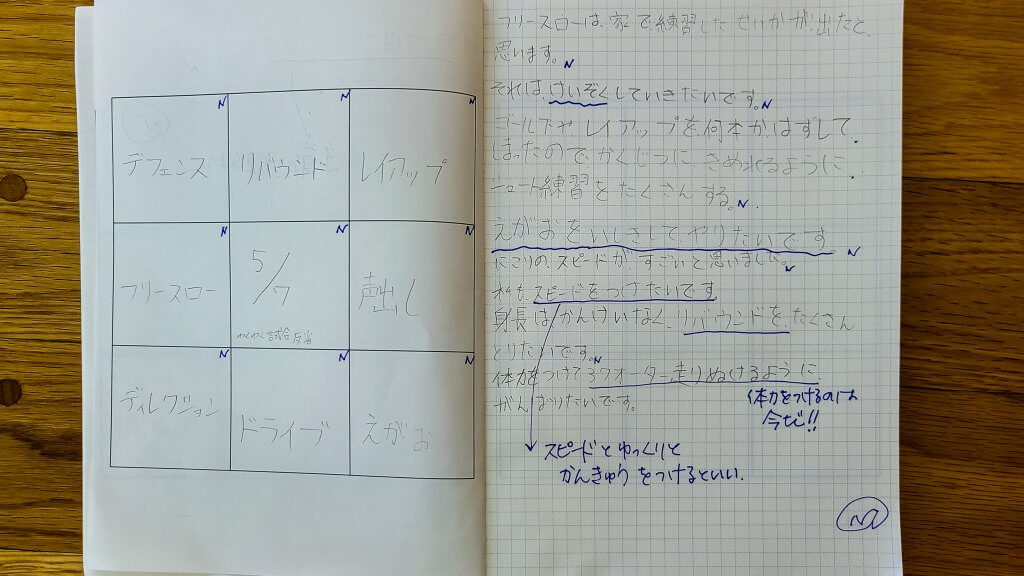 デフェンス
リバウンド
レイアップ
フリースロー
5/7
わくわく試合反省
声出し
ディレクション
ドライブ
えがお
フリースローは、家で練習したせいかが出たと、
思います。
それは、けいぞくしていきたいです。
ゴール下や レイアップを何本かはずして
しまったので、かくじつに きめれるように
シュート練習をたくさんする。
えがおをいしきしてやりたいです
スピードが、すごいと思いました。
スピードをつけたいです
身長はかんけいなく、リバウンドを、たくさん
とりたいです。
体力をつけて3クオーター走りぬけるように
がんばりたいです。
体力をつけるのは
今だ!!
スピードとゆっくりと
かんきゅうをつけるといい.